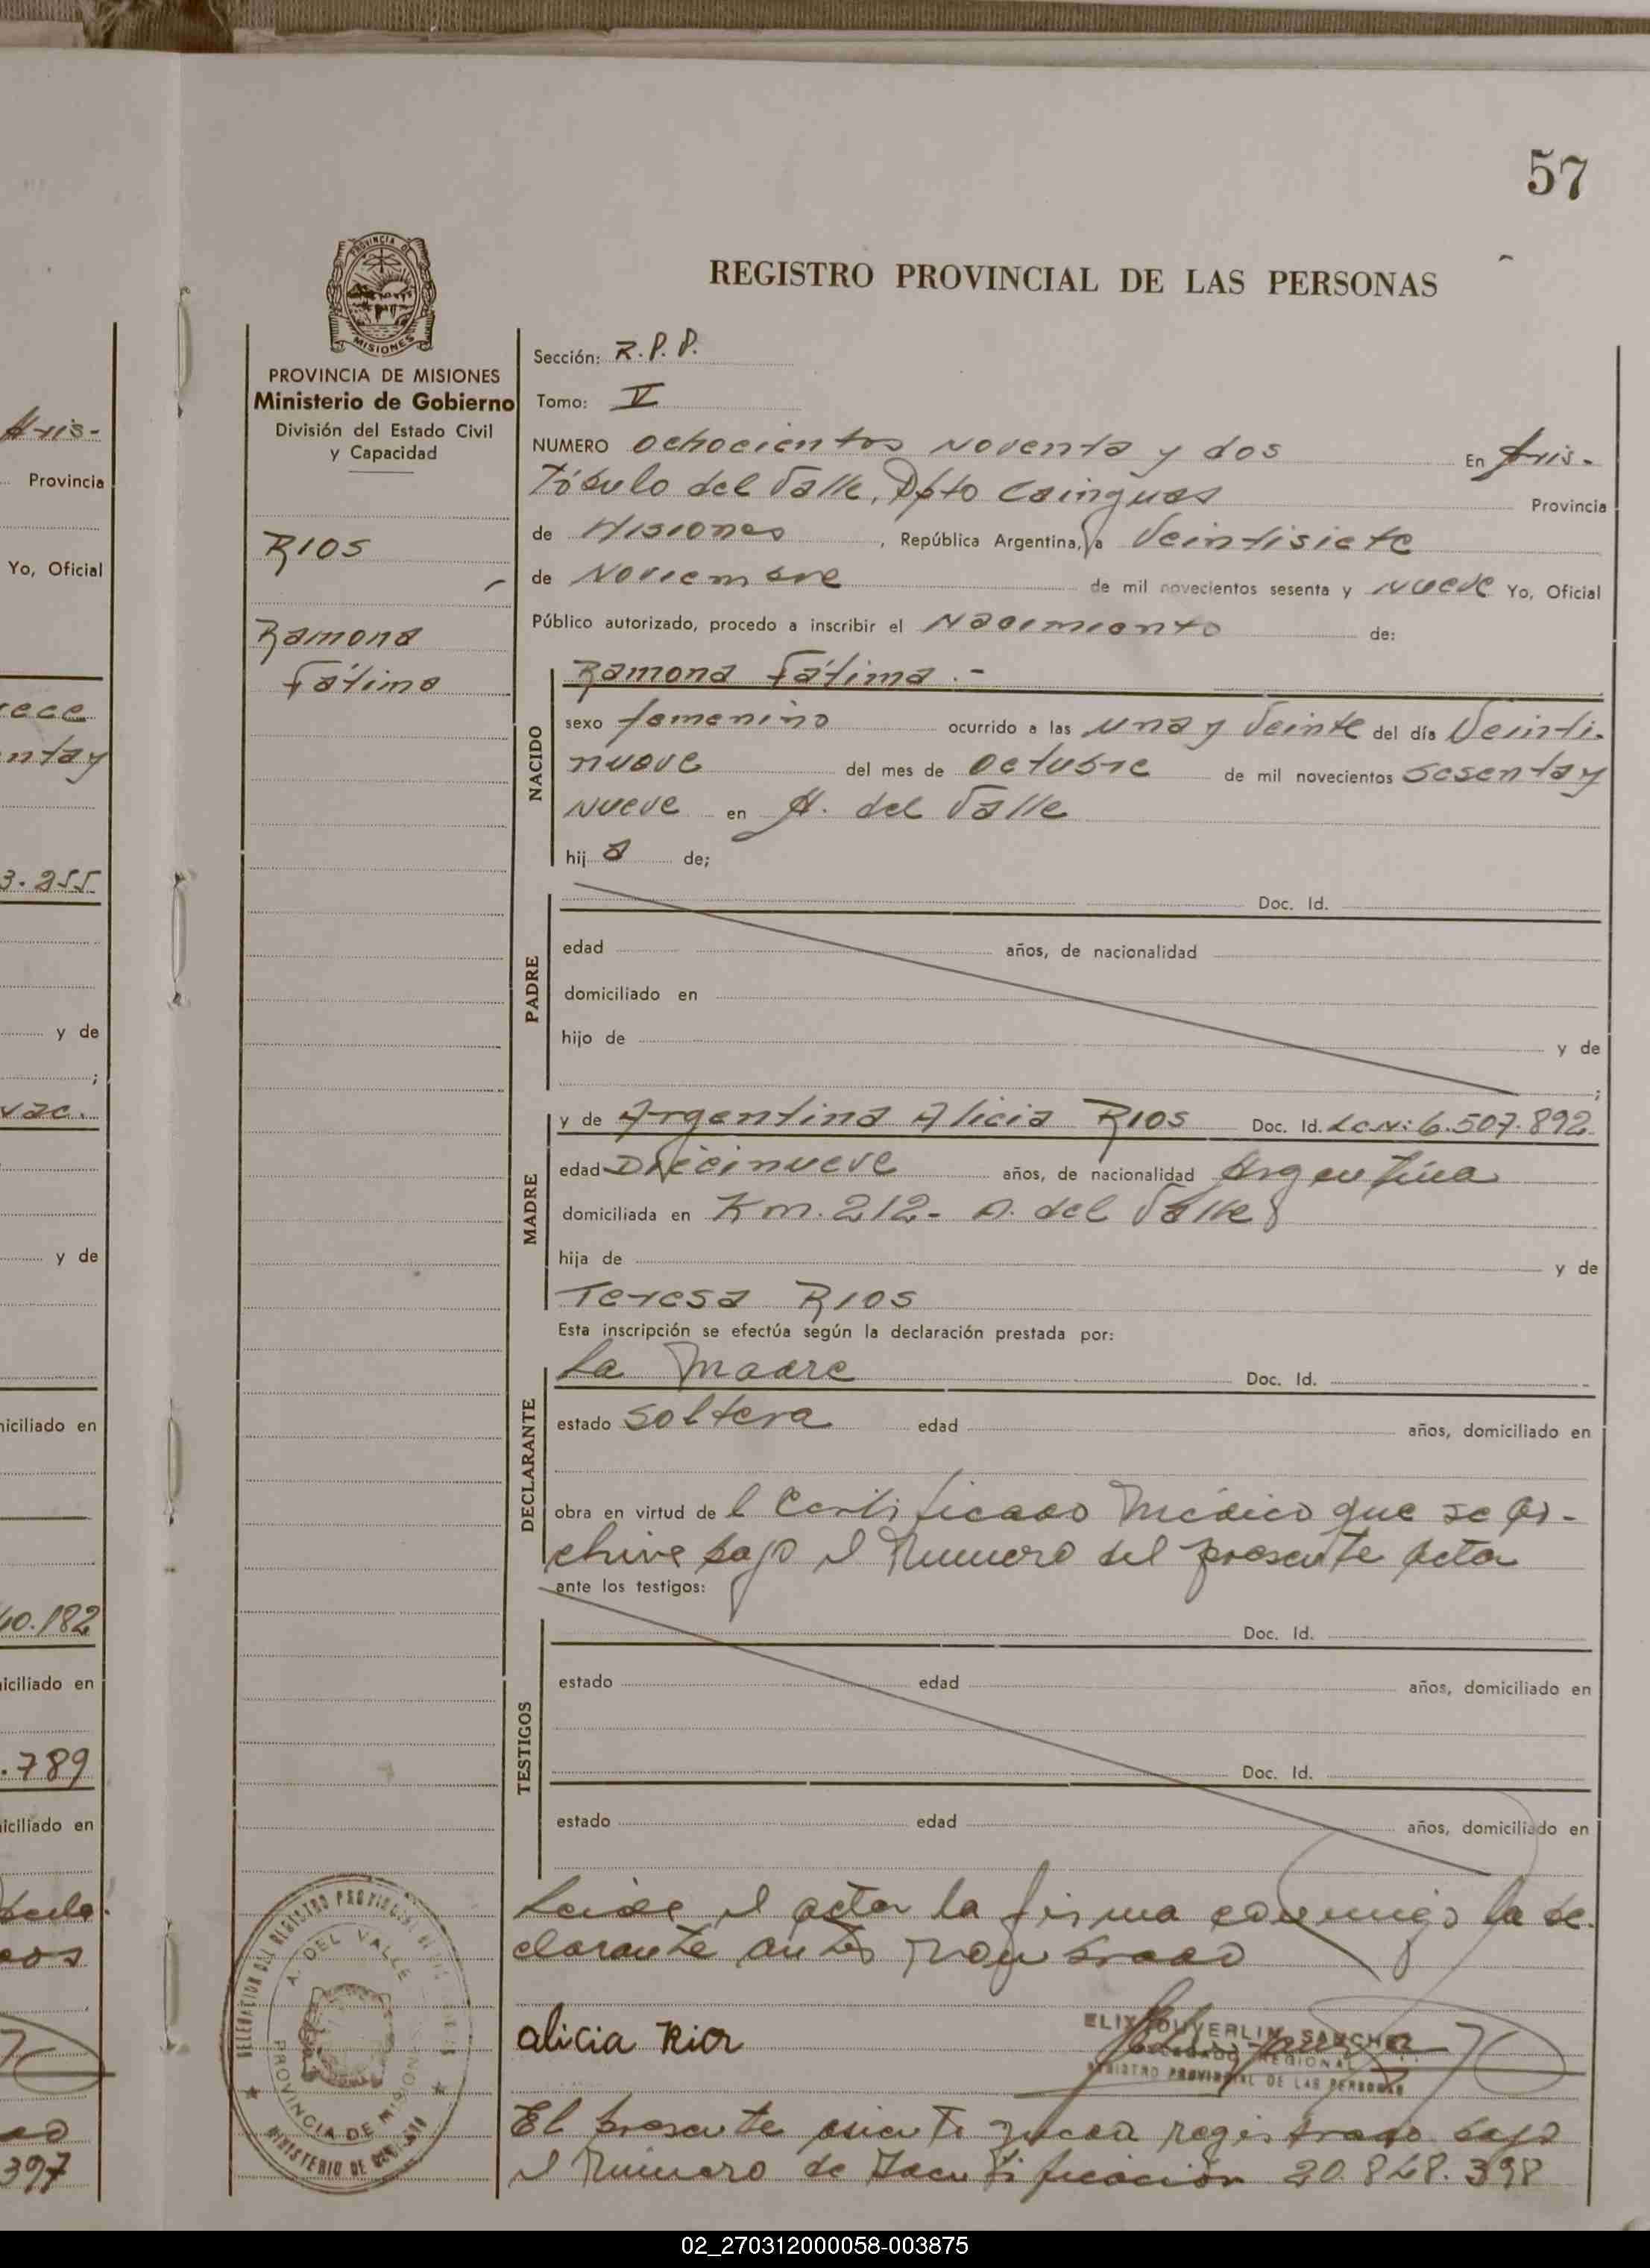 Aris-
Provincia
Yo, Oficial
ntay
3.255
y de
;
y de
niciliado en
40.182
iciliado en
.789
iciliado en
397
57
PROVINCIA DE
MISIONES
REGISTRO PROVINCIAL DE LAS PERSONAS
PROVINCIA DE MISIONES
Ministerio de Gobierno
División del Estado Civil
y Capacidad
RIOS
Ramona
Fátima
Sección: R.P.P.
Tomo: V
NUMERO ochocientos noventa y dos En Aris-
tóbulo del Valle, Dpto Cainguas Provincia
de Misiones, República Argentina, a Veintisiete
de Noviembre de mil novecientos sesenta y nueve Yo, Oficial
Público autorizado, procedo a inscribir el Nacimiento de:
NACIDO
Ramona Fátima.-
sexo femenino ocurrido a las una y Veinte del día Veinti-
nueve del mes de Octubre de mil novecientos sesenta y
nueve en A. del Valle
hij a de;
PADRE
Doc. Id.
edad años, de nacionalidad
domiciliado en
hijo de y de
;
MADRE
y de Argentina Alicia RIOS Doc. Id. LC.N: 6.507.892
edad Diecinueve años, de nacionalidad Argentina
domiciliada en Km. 212- A. del Valle
hija de y de
Teresa RIOS
Esta inscripción se efectúa según la declaración prestada por:
DECLARANTE
La Madre Doc. Id.
estado soltera edad años, domiciliado en
obra en virtud de l Certificado Médico que se ar-
chiva bajo el Número del presente acta
ante los testigos:
TESTIGOS
Doc. Id.
estado edad años, domiciliado en
Doc. Id.
estado edad años, domiciliado en
Leida el acta la firma conmigo la de-
clarante antes nombrado
alicia Rios
ELIX OLIVERLIN SANCHEZ
DELEGADO REGIONAL
REGISTRO PROVINCIAL DE LAS PERSONAS
DELEGACION DEL REGISTRO PROVINCIAL DE LAS PERSONAS
A. DEL VALLE
PROVINCIA DE MISIONES
MINISTERIO DE GOBIERNO
El presente asiento queda registrado bajo
el Número de Identificación 20.848.398
02_270312000058-003875